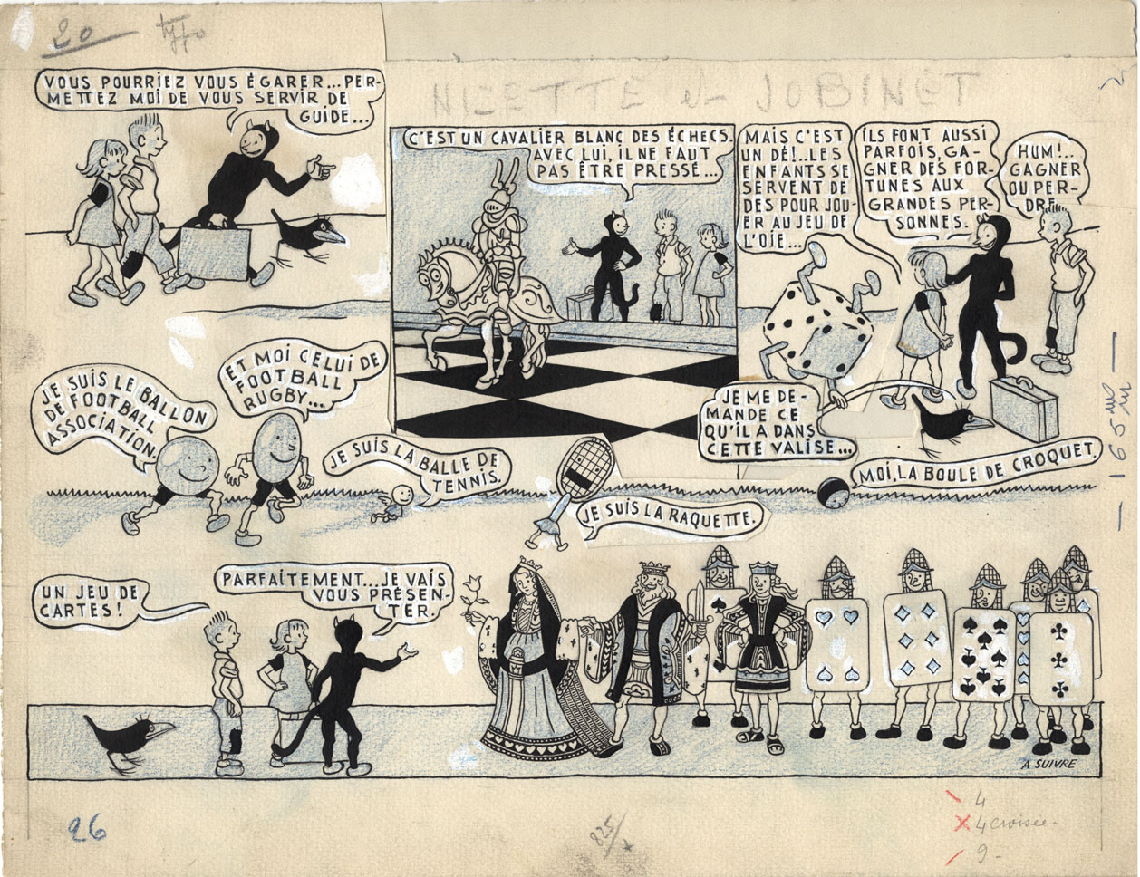 20 typo
NCETTE et JOBINET
VOUS POURRIEZ VOUS ÉGARER...PER-
METTEZ MOI DE VOUS SERVIR DE
GUIDE...
C'EST UN CAVALIER BLANC DES ÉCHECS.
AVEC LUI, IL NE FAUT
PAS ÊTRE PRESSÉ...
MAIS C'EST
UN DÉ!..LES
ENFANTS SE
SERVENT DE
DES POUR JOU-
ER AU JEU DE
L'OIE...
ILS FONT AUSSI
PARFOIS, GA-
GNER DES FOR-
TUNES AUX
GRANDES PER-
SONNES.
HUM!..
GAGNER
OU PER-
DRE.
JE ME DE-
MANDE CE
QU'IL A DANS
CETTE VALISE...
JE SUIS LE BALLON
DE FOOTBALL
ASSOCIATION.
ET MOI CELUI DE
FOOTBALL
RUGBY...
JE SUIS LA BALLE DE
TENNIS.
JE SUIS LA RAQUETTE.
MOI, LA BOULE DE CROQUET.
165
UN JEU DE
CARTES!
PARFAITEMENT...JE VAIS
VOUS PRÉSEN-
TER.
A SUIVRE
26
825
4
4 croisée-
9-